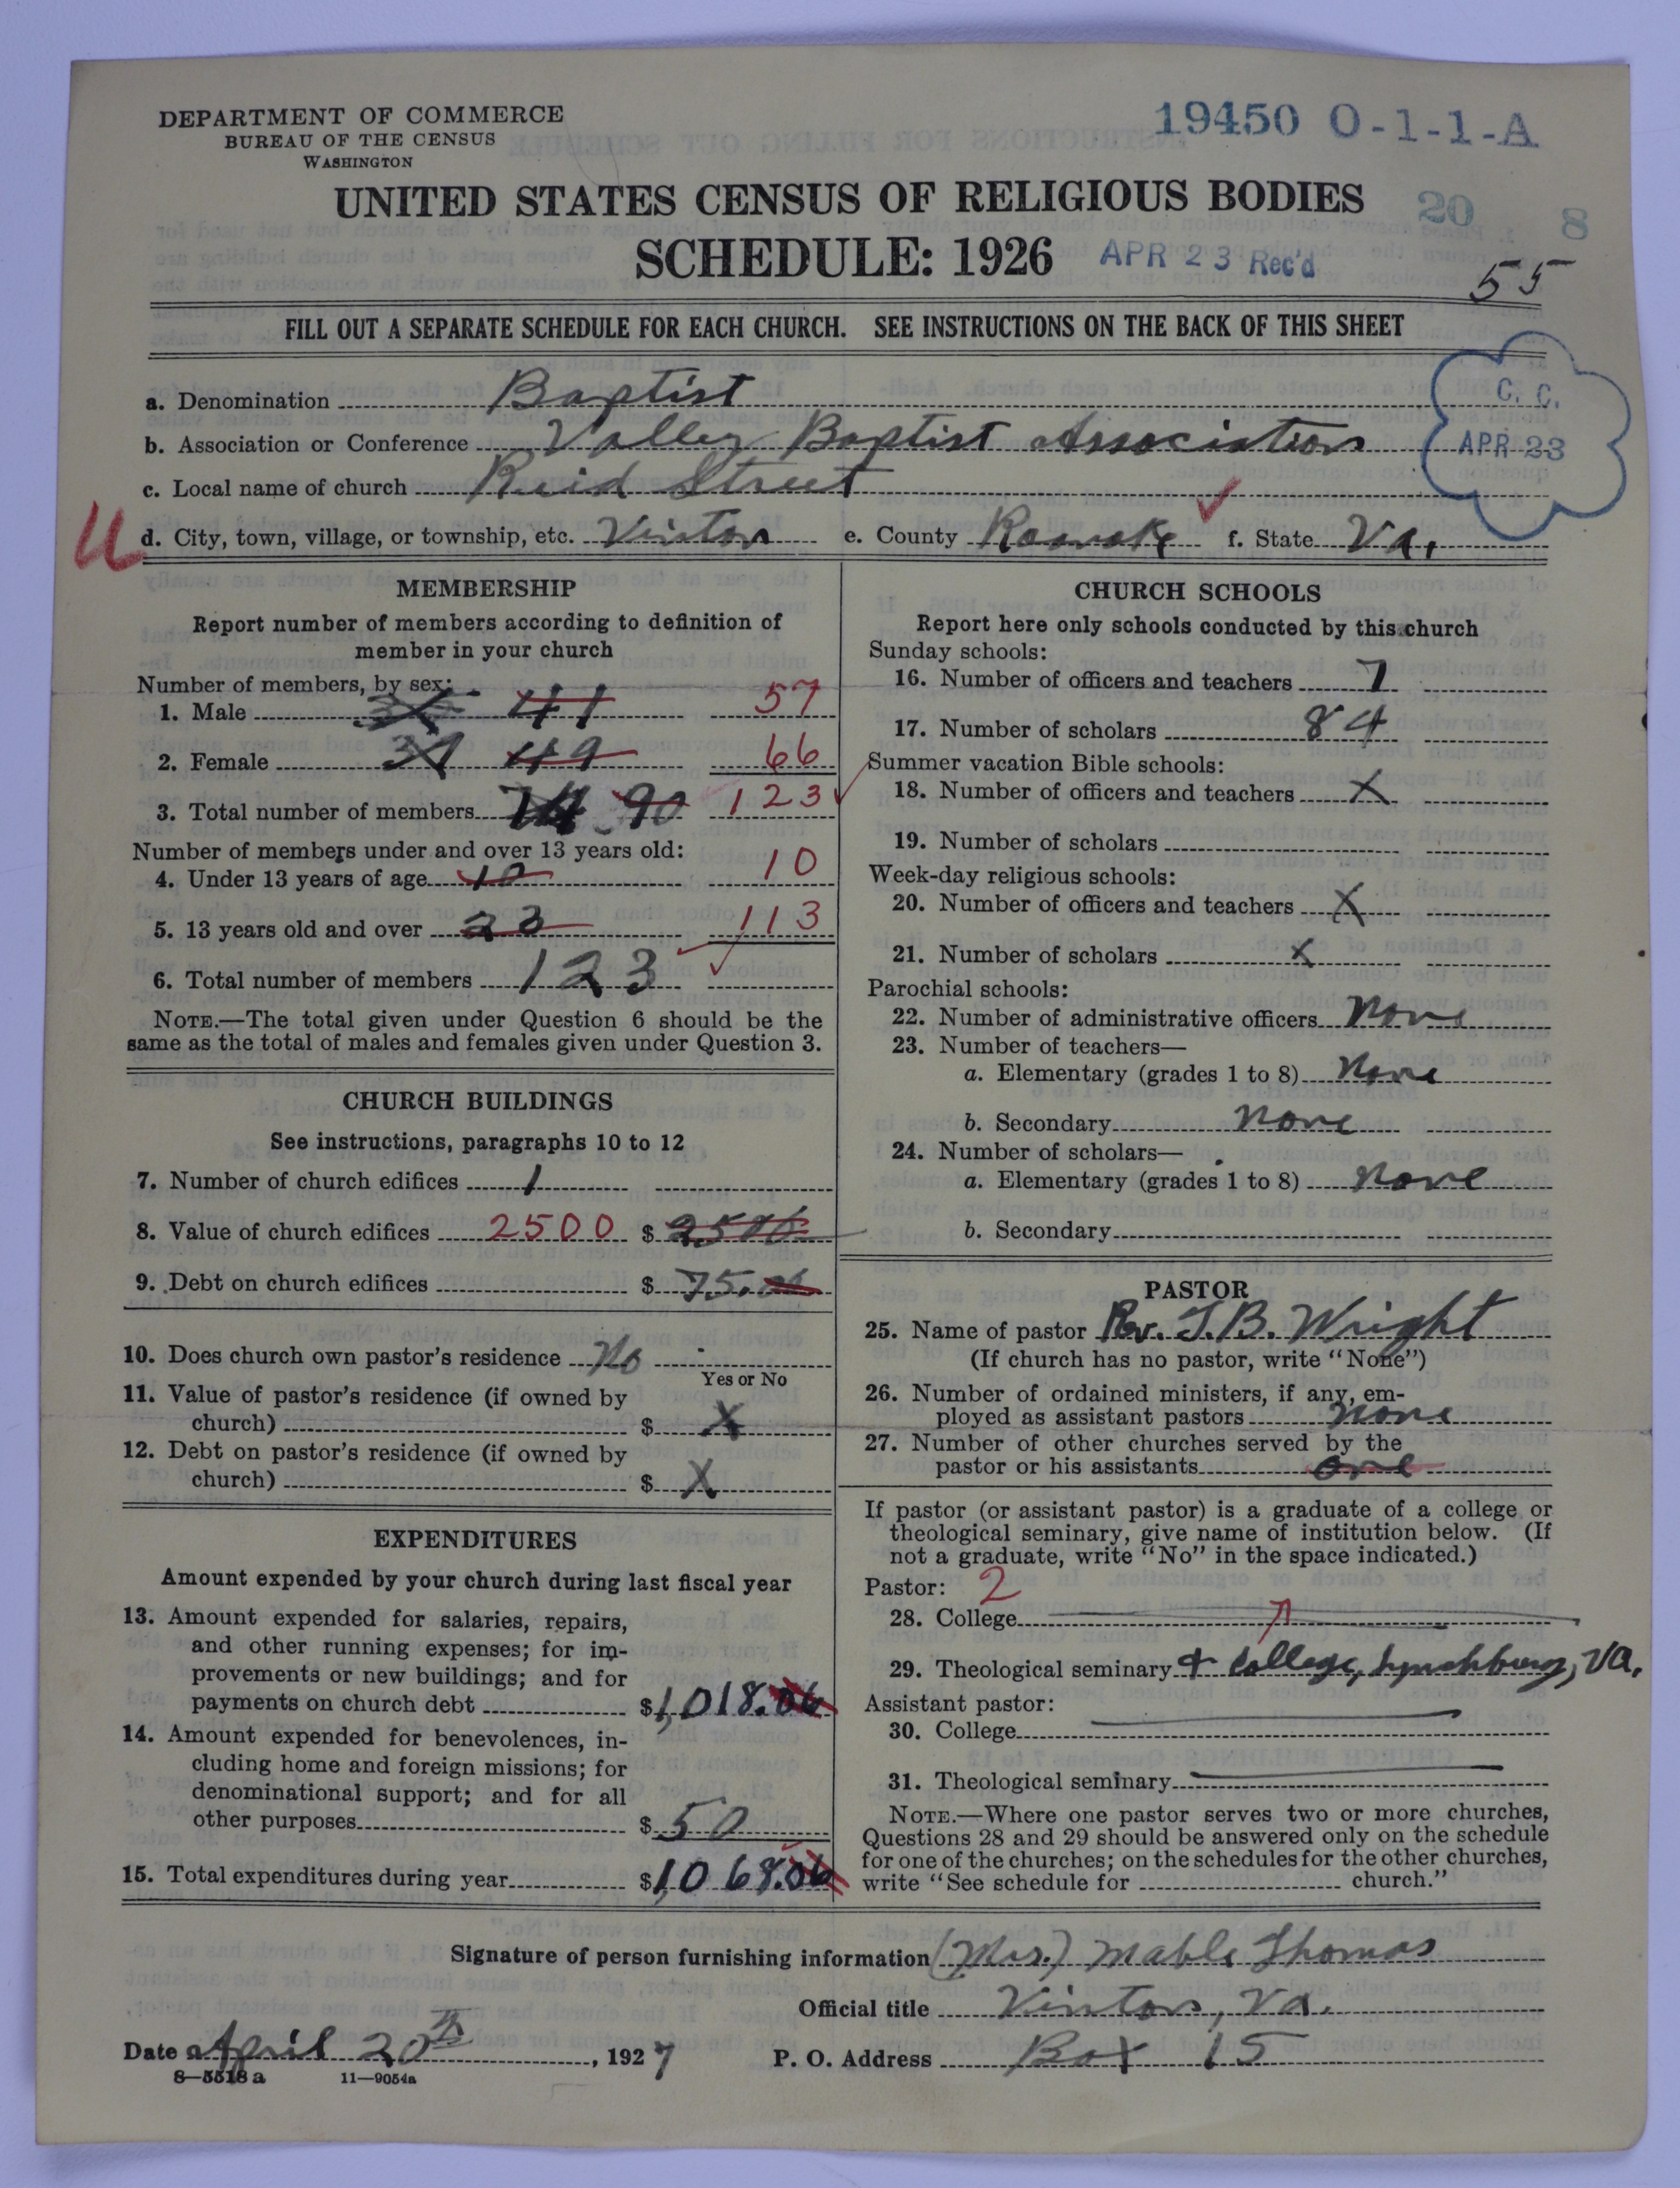 DEPARTMENT OF COMMERCE
BUREAU OF THE CENSUS
WASHINGTON
19450 O-1-1-A
UNITED STATES CENSUS OF RELIGIOUS BODIES
20 8
SCHEDULE: 1926
APR 23 Rec'd
55
FILL OUT A SEPARATE SCHEDULE FOR EACH CHURCH. SEE INSTRUCTIONS ON THE BACK OF THIS SHEET
C. C.
APR 23
a. Denomination Baptist
b. Association or Conference Valley Baptist Association
c. Local name of church Reid Street
U
d. City, town, village, or township, etc. Vinton e. County Roanoke f. State Va.
MEMBERSHIP
Report number of members according to definition of
member in your church
Number of members, by sex:
1. Male 41 57
2. Female 37 49 66
3. Total number of members 74 90 123
Number of members under and over 13 years old:
4. Under 13 years of age 10 10
5. 13 years old and over 23 113
6. Total number of members 123
NOTE.—The total given under Question 6 should be the
same as the total of males and females given under Question 3.
CHURCH BUILDINGS
See instructions, paragraphs 10 to 12
7. Number of church edifices 1
8. Value of church edifices 2500 $ 2500
9. Debt on church edifices $ 75.00
10. Does church own pastor's residence No
Yes or No
11. Value of pastor's residence (if owned by
church) $ X
12. Debt on pastor's residence (if owned by
church) $ X
EXPENDITURES
Amount expended by your church during last fiscal year
13. Amount expended for salaries, repairs,
and other running expenses; for im-
provements or new buildings; and for
payments on church debt $1,018.06
14. Amount expended for benevolences, in-
cluding home and foreign missions; for
denominational support; and for all
other purposes $ 50
15. Total expenditures during year $1,068.06
CHURCH SCHOOLS
Report here only schools conducted by this church
Sunday schools:
16. Number of officers and teachers 7
17. Number of scholars 84
Summer vacation Bible schools:
18. Number of officers and teachers X
19. Number of scholars
Week-day religious schools:
20. Number of officers and teachers X
21. Number of scholars X
Parochial schools:
22. Number of administrative officers None
23. Number of teachers—
a. Elementary (grades 1 to 8) None
b. Secondary None
24. Number of scholars—
a. Elementary (grades 1 to 8) None
b. Secondary
PASTOR
25. Name of pastor Rev. J.B. Wright
(If church has no pastor, write "None")
26. Number of ordained ministers, if any, em-
ployed as assistant pastors None
27. Number of other churches served by the
pastor or his assistants one
If pastor (or assistant pastor) is a graduate of a college or
theological seminary, give name of institution below. (If
not a graduate, write "No" in the space indicated.)
Pastor: 2
28. College
29. Theological seminary + College, Lynchburg, Va.
Assistant pastor:
30. College
31. Theological seminary
NOTE.—Where one pastor serves two or more churches,
Questions 28 and 29 should be answered only on the schedule
for one of the churches; on the schedules for the other churches,
write "See schedule for church."
Signature of person furnishing information (Mrs.) Mable Thomas
Official title Vinton, Va.
Date April 20th, 1927 P. O. Address Box 15
8—5518a 11—9054a